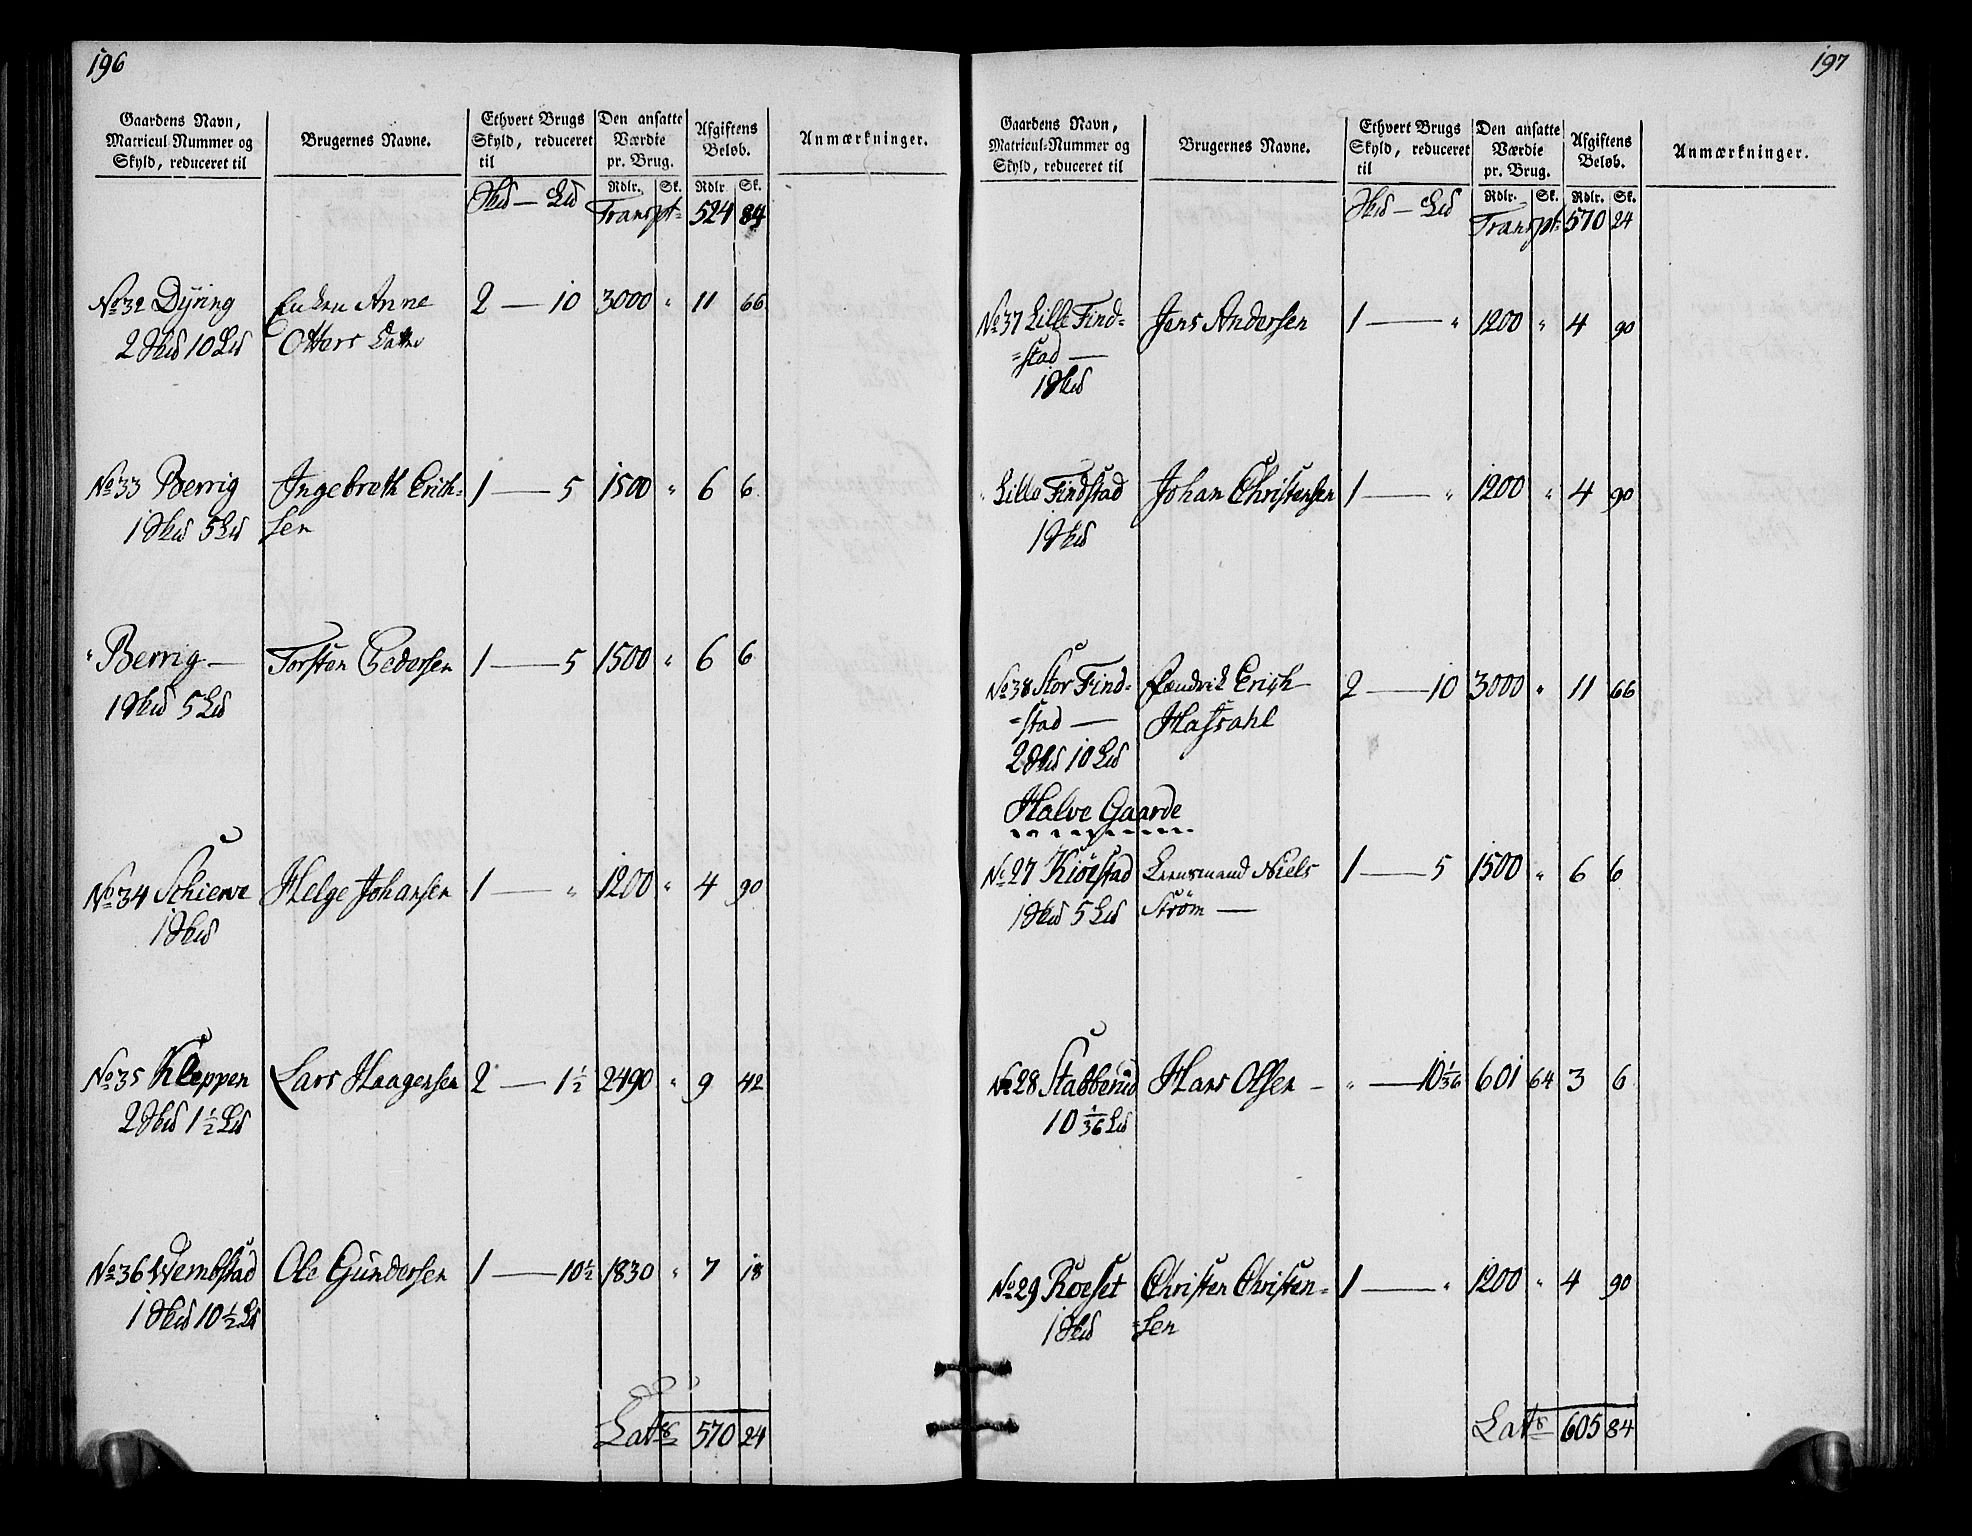 196
Gaardens Navn, Matricul-Nummer og Skyld, reduceret til | Brugernes Navne. | Ethvert Brugs Skyld, reduceret til | Den ansatte Værdie pr. Brug. | Afgiftens Beløb. | Anmærkninger.
Rdlr. Sk. Rdlr Sk.
Hud — Ld Transpt= 524 84
No 32 Dyring Enken Anne 2 — 10 3000 " 11 66
2 Hud 10 Ld Otters Datter
No 33 Berrig Ingebreth Erich= 1 — 5 1500 " 6 6
1 Hud 5 Ld sen
" Berrig — Torsten Pedersen 1 — 5 1500 " 6 6
1 Hud 5 Ld
No 34 Schierve Helge Johansen 1 — " 1200 " 4 90
1 Hud
No 35 Kleppen Lars Haagensen 2 — 1½ 2490 " 9 42
2 Hud 1½ Ld
No 36 Wembstad Ole Gundersen 1 — 10½ 1830 " 7 18
1 Hud 10½ Ld
Lats 570 24
197
Gaardens Navn, Matricul-Nummer og Skyld, reduceret til | Brugernes Navne. | Ethvert Brugs Skyld, reduceret til | Den ansatte Værdie pr. Brug. | Afgiftens Beløb. | Anmærkninger.
Rdlr. Sk. Rdlr. Sk.
Hud — Ld Transpt= 570 24
No 37 Lille Find= Jens Andersen 1 — " 1200 " 4 90
=stad —
1 Hud
" Lille Findstad Johan Christensen 1 — " 1200 " 4 90
1 Hud
No 38 Stor Find= Fændrik Erich 2 — 10 3000 " 11 66
=stad —
2 Hud 10 Ld
Halve Gaarde
No 27 Kiöestad Leensmand Niels 1 — 5 1500 " 6 6
1 Hud 5 Ld Strøm —
No 28 Stabberud Hans Olsen — " — 10 1/36 601 64 3 6
10 1/36 Ld
No 29 Roeset Christen Christen= 1 — " 1200 " 4 90
1 Hud =sen
Lats 605 84